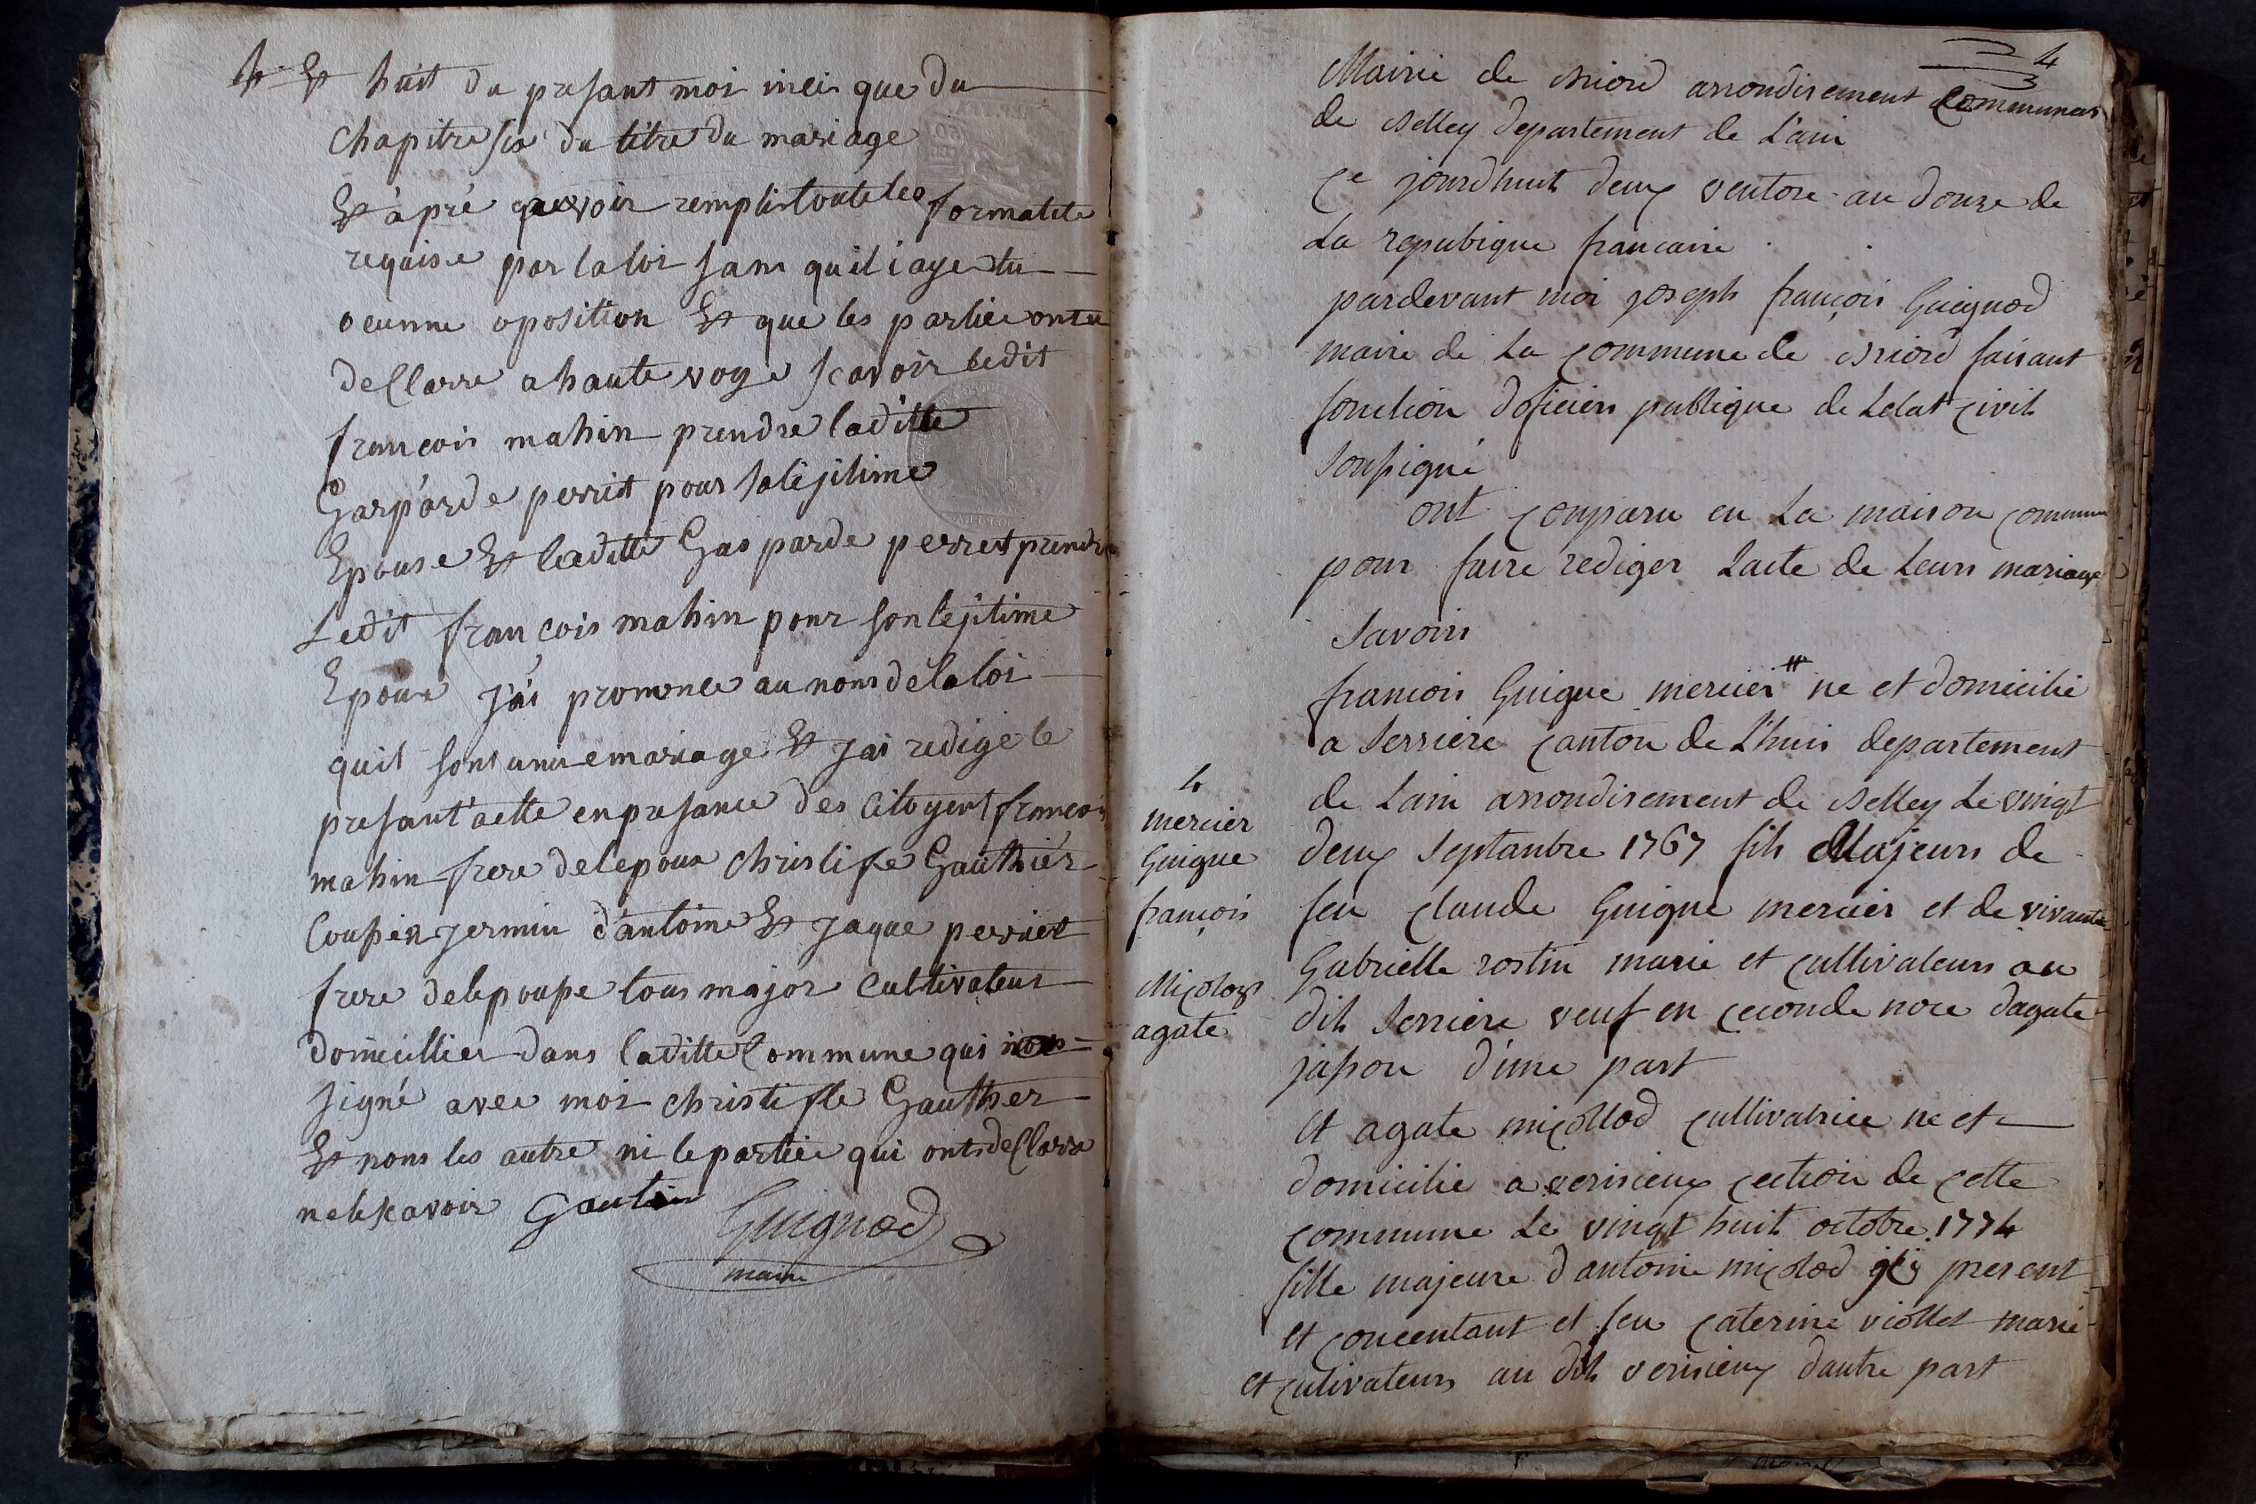 h Et huit du presant mois inci que du
chapitre six du titre du mariage
Et apré avoir remplis toute les formalite
requise par la loi sans quil i aye tu
ocunne oposition Et que les partie ont
declarre a haute voye scavoir ledit
francois mahin prendre laditte
Gasparde perret pour sa lejitime
Epouse Et laditte Gasparde perret prendre
Ledit francois mahin pour son lejitime
Epoux j'ai prononce au nom de la loi
quil sont unu e mariage Et jai redige le
presant acte en presance des Citoyent francois
mahin frere de lepoux christifle Gauthier
Cousin jermin d'antoine Et jaque perret
frere de lepouse tous major cultivateur
domicillier dans laditte Commune qui
signé avec moi christifle Gauther
Et nons les autre ni le partie qui ont declarre
ne le scavoir
Guignod
maire
4
Mairie de Briord arrondisement Communas
de Belley departement de L'ain
Ce jourdhuit deux ventose an douze de
La repubique francaise
pardevant moi joseph françois Guignod
maire de La commune de Briord faisant
fonction doficiers publique de Letat civil
soussigné
ont comparu en La maison commune
pour faire rediger Lacte de leurs mariage
Savoirs
francois Guigue mercier # ne et domicilie
a Serriere canton de L'huis departement
de Lain arrondisement de Belley Le vingt
deux Septanbre 1767 fils Majeurs de
feu claude Guigue mercier et de vivante
Gabrielle rostin marie et cultivateurs au
dit Serriere veuf en ceconde noce dagate
jasson d'une part
4
mercier
Guigue
françois
Micolod
agate
Et agate micollod cultivatrice ne et
domicilie a verisieux cection de cette
commune Le vingt huit octobre 1774
fille majeure d'antoine micolod present
et concentant et feu caterine viollet marie
et cutivateurs au dit verisieux dautre part